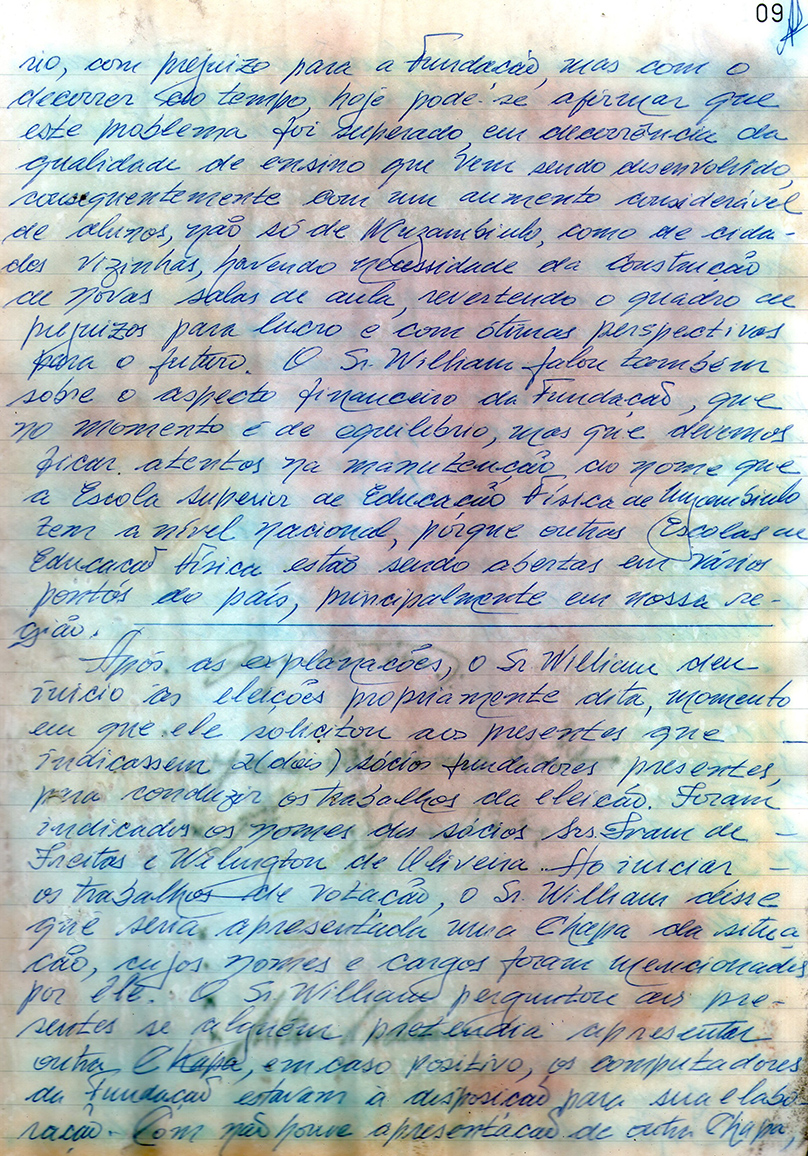 09
rio, com prejuizo para a Fundação, mas com o
decorrer do tempo, hoje pode-se afirmar que
este problema foi superado, em decorrência da
qualidade de ensino que vem sendo desenvolvido,
consequentemente com um aumento considerável
de alunos, não só de Muzambinho, como de cida-
des vizinhas, havendo necessidade da construção
de novas salas de aula, revertendo o quadro de
prejuizos para lucro e com ótimas perspectivas
para o futuro. O Sr. William falou também
sobre o aspecto financeiro da Fundação, que
no momento é de equilibrio, mas que devemos
ficar atentos na manutenção do nome que
a Escola Superior de Educação Física de Muzambinho
tem a nível nacional, porque outras Escolas de
Educação Física estão sendo abertas em vários
pontos do país, principalmente em nossa re-
gião.
Após as explanações, o Sr. William deu
início às eleições propriamente dita, momento
em que ele solicitou aos presentes que
indicassem 2(dois) sócios fundadores presentes,
para conduzir os trabalhos da eleição. Foram
indicados os nomes dos sócios Srs. Ivam de
Freitas e Wilington de Oliveira. Ao iniciar
os trabalhos de votação, o Sr. William disse
que seria apresentada uma Chapa da situa
ção, cujos nomes e cargos foram mencionados
por ele. O Sr. William perguntou aos pre-
sentes se alguém pretendia apresentar
outra Chapa, em caso positivo, os computadores
da Fundação estavam à disposição para sua elabo-
ração. Com não houve apresentação de outra Chapa,